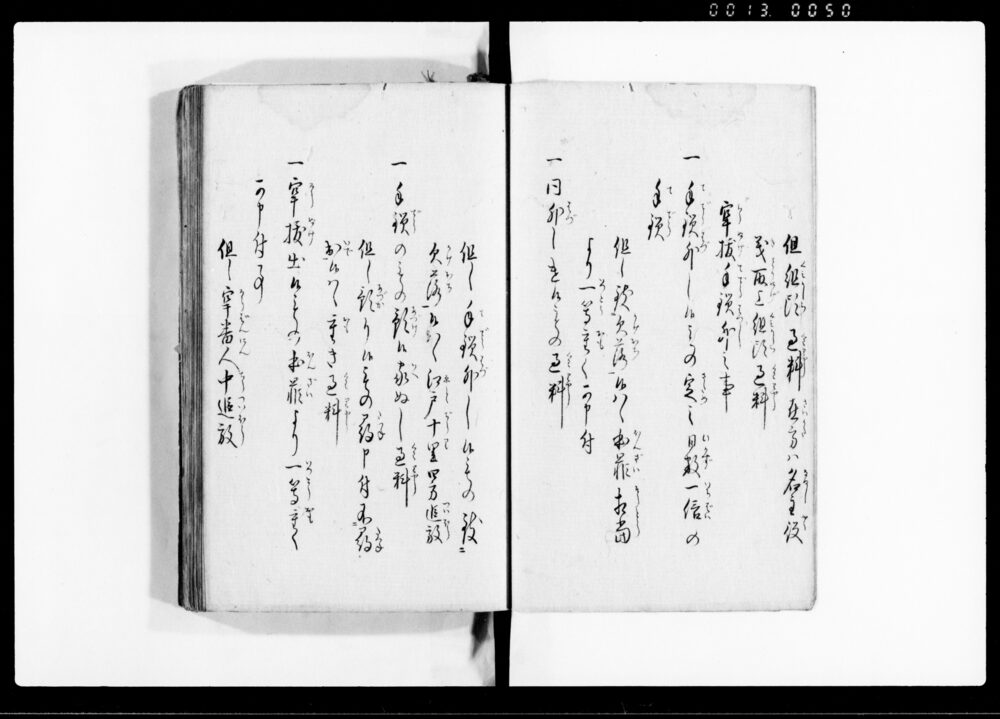 0013. 0050
但組頭過料在方ハ名主役
義取上組頭過料
牢抜手鎖外之事
一手鎖外し候もの定之日数一倍の
手鎖
但し致欠落候ハヽ本罪相当
より一等重く可申付
一同外し遣候もの過料
但し手鎖外し候もの致
欠落候ハヽ江戸十里四方追放
一手鎖のもの預候家ぬし過料
但し預り候もの尋申付不尋
出候ハヽ重き過料
一牢抜出候もの本罪より一等重く
可申付事
但し牢番人中追放